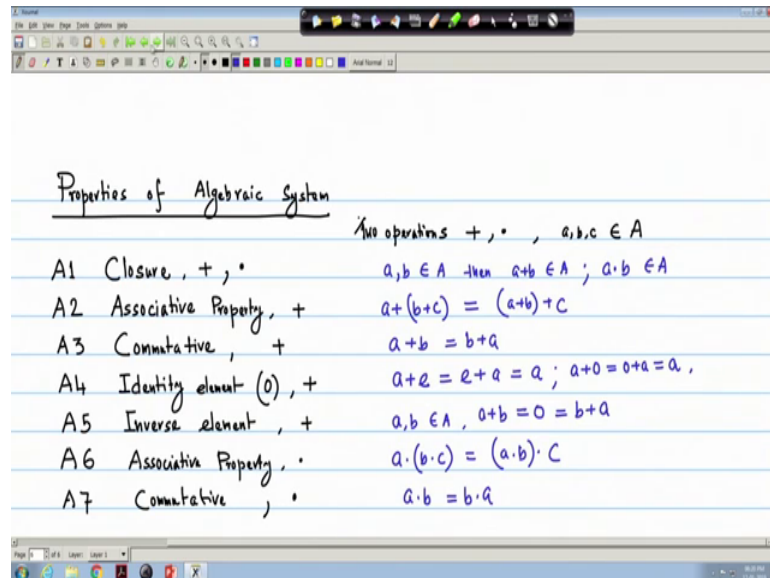 Journal
File Edit View Page Tools Options Help
Arial Normal 12
Properties of Algebraic System
Two operations +, · , a,b,c ∈ A
A1 Closure, +, · a,b ∈ A then a+b ∈ A ; a·b ∈ A
A2 Associative Property, + a+(b+c) = (a+b)+c
A3 Commutative, + a+b = b+a
A4 Identity element (0), + a+e = e+a = a ; a+0 = 0+a = a,
A5 Inverse element, + a,b ∈ A, a+b = 0 = b+a
A6 Associative Property, · a·(b·c) = (a·b)·c
A7 Commutative, · a·b = b·a
Page of 8 Layer: Layer 1